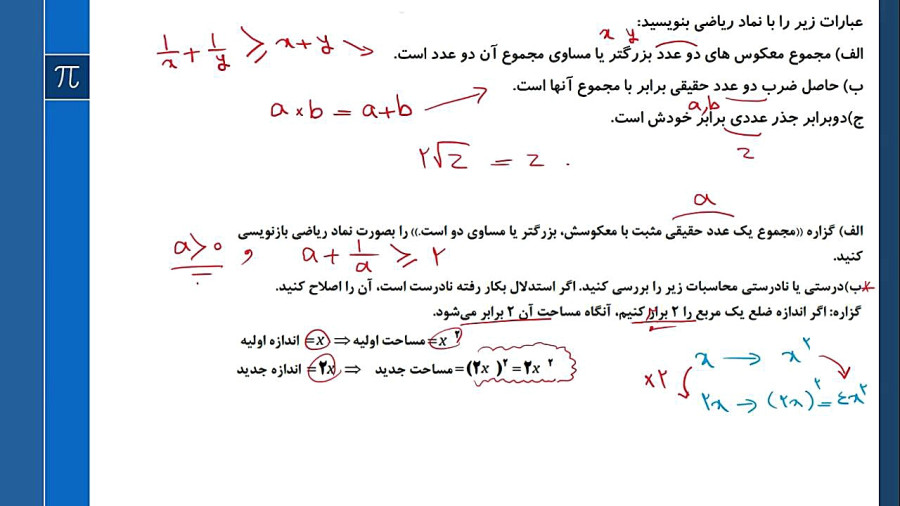 π
عبارات زیر را با نماد ریاضی بنویسید:
x y
الف) مجموع معکوس های دو عدد بزرگتر یا مساوی مجموع آن دو عدد است.
1/x + 1/y ≥ x+y
ب) حاصل ضرب دو عدد حقیقی برابر با مجموع آنها است.
a,b
a × b = a+b
ج)دوبرابر جذر عددی برابر خودش است.
z
۲√z = z .
a
الف) گزاره ((مجموع یک عدد حقیقی مثبت با معکوسش، بزرگتر یا مساوی دو است.)) را بصورت نماد ریاضی بازنویسی
کنید.
a>۰ , a + 1/a ≥ ۲
ب)درستی یا نادرستی محاسبات زیر را بررسی کنید. اگر استدلال بکار رفته نادرست است، آن را اصلاح کنید.
گزاره: اگر اندازه ضلع یک مربع را ۲ برابر کنیم، آنگاه مساحت آن ۲ برابر می‌شود.
اندازه اولیه =x ⇒ مساحت اولیه =x²
اندازه جدید =۲x ⇒ مساحت جدید =(۲x)²=۲x²
x → x²
×۲
۲x → (۲x)² = ٤x²